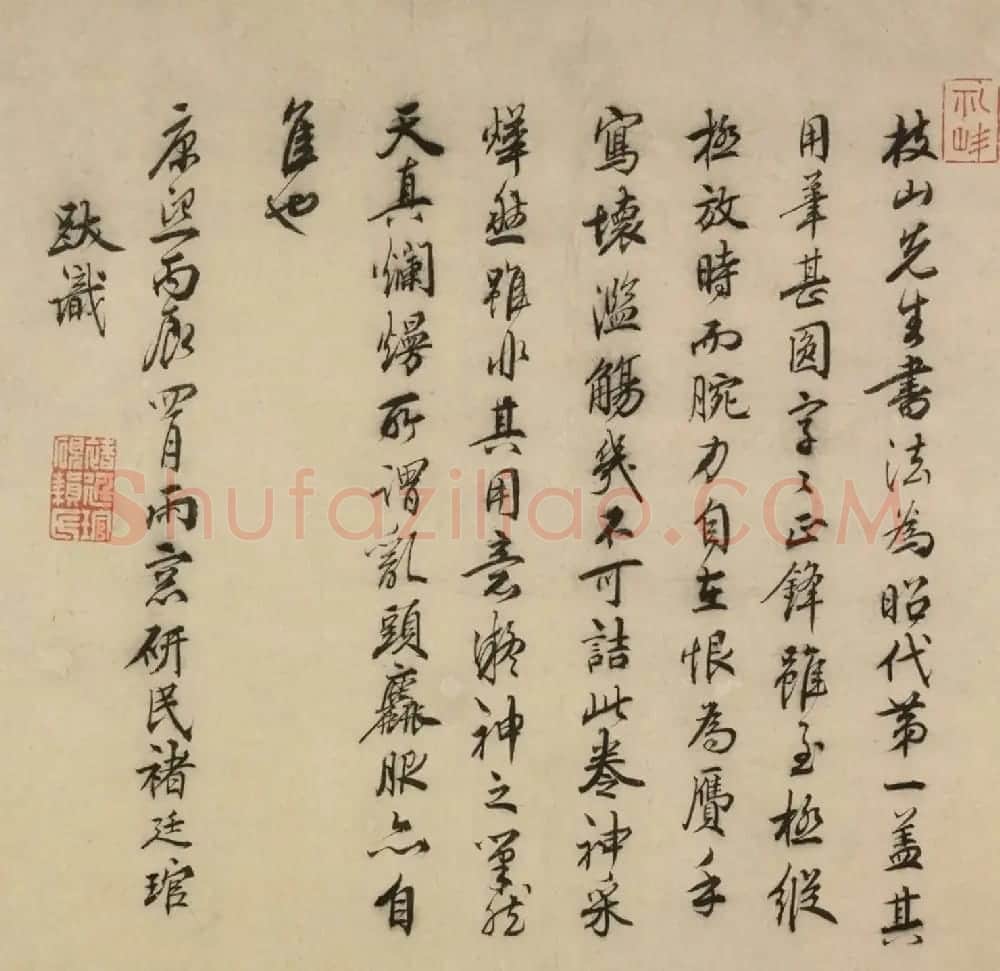 枝山先生書法為昭代第一蓋其
用筆甚圓字〻正鋒雖至極縱
極放時而腕力自在恨為贋手
寫壞濫觴幾不可詰此卷神采
燁然雖非其用意凝神之筆然
天真爛熳所謂亂頭麤服亦自
佳也
康熙丙辰四月雨窓研民褚廷琯
跋識
Shufaziliao.COM